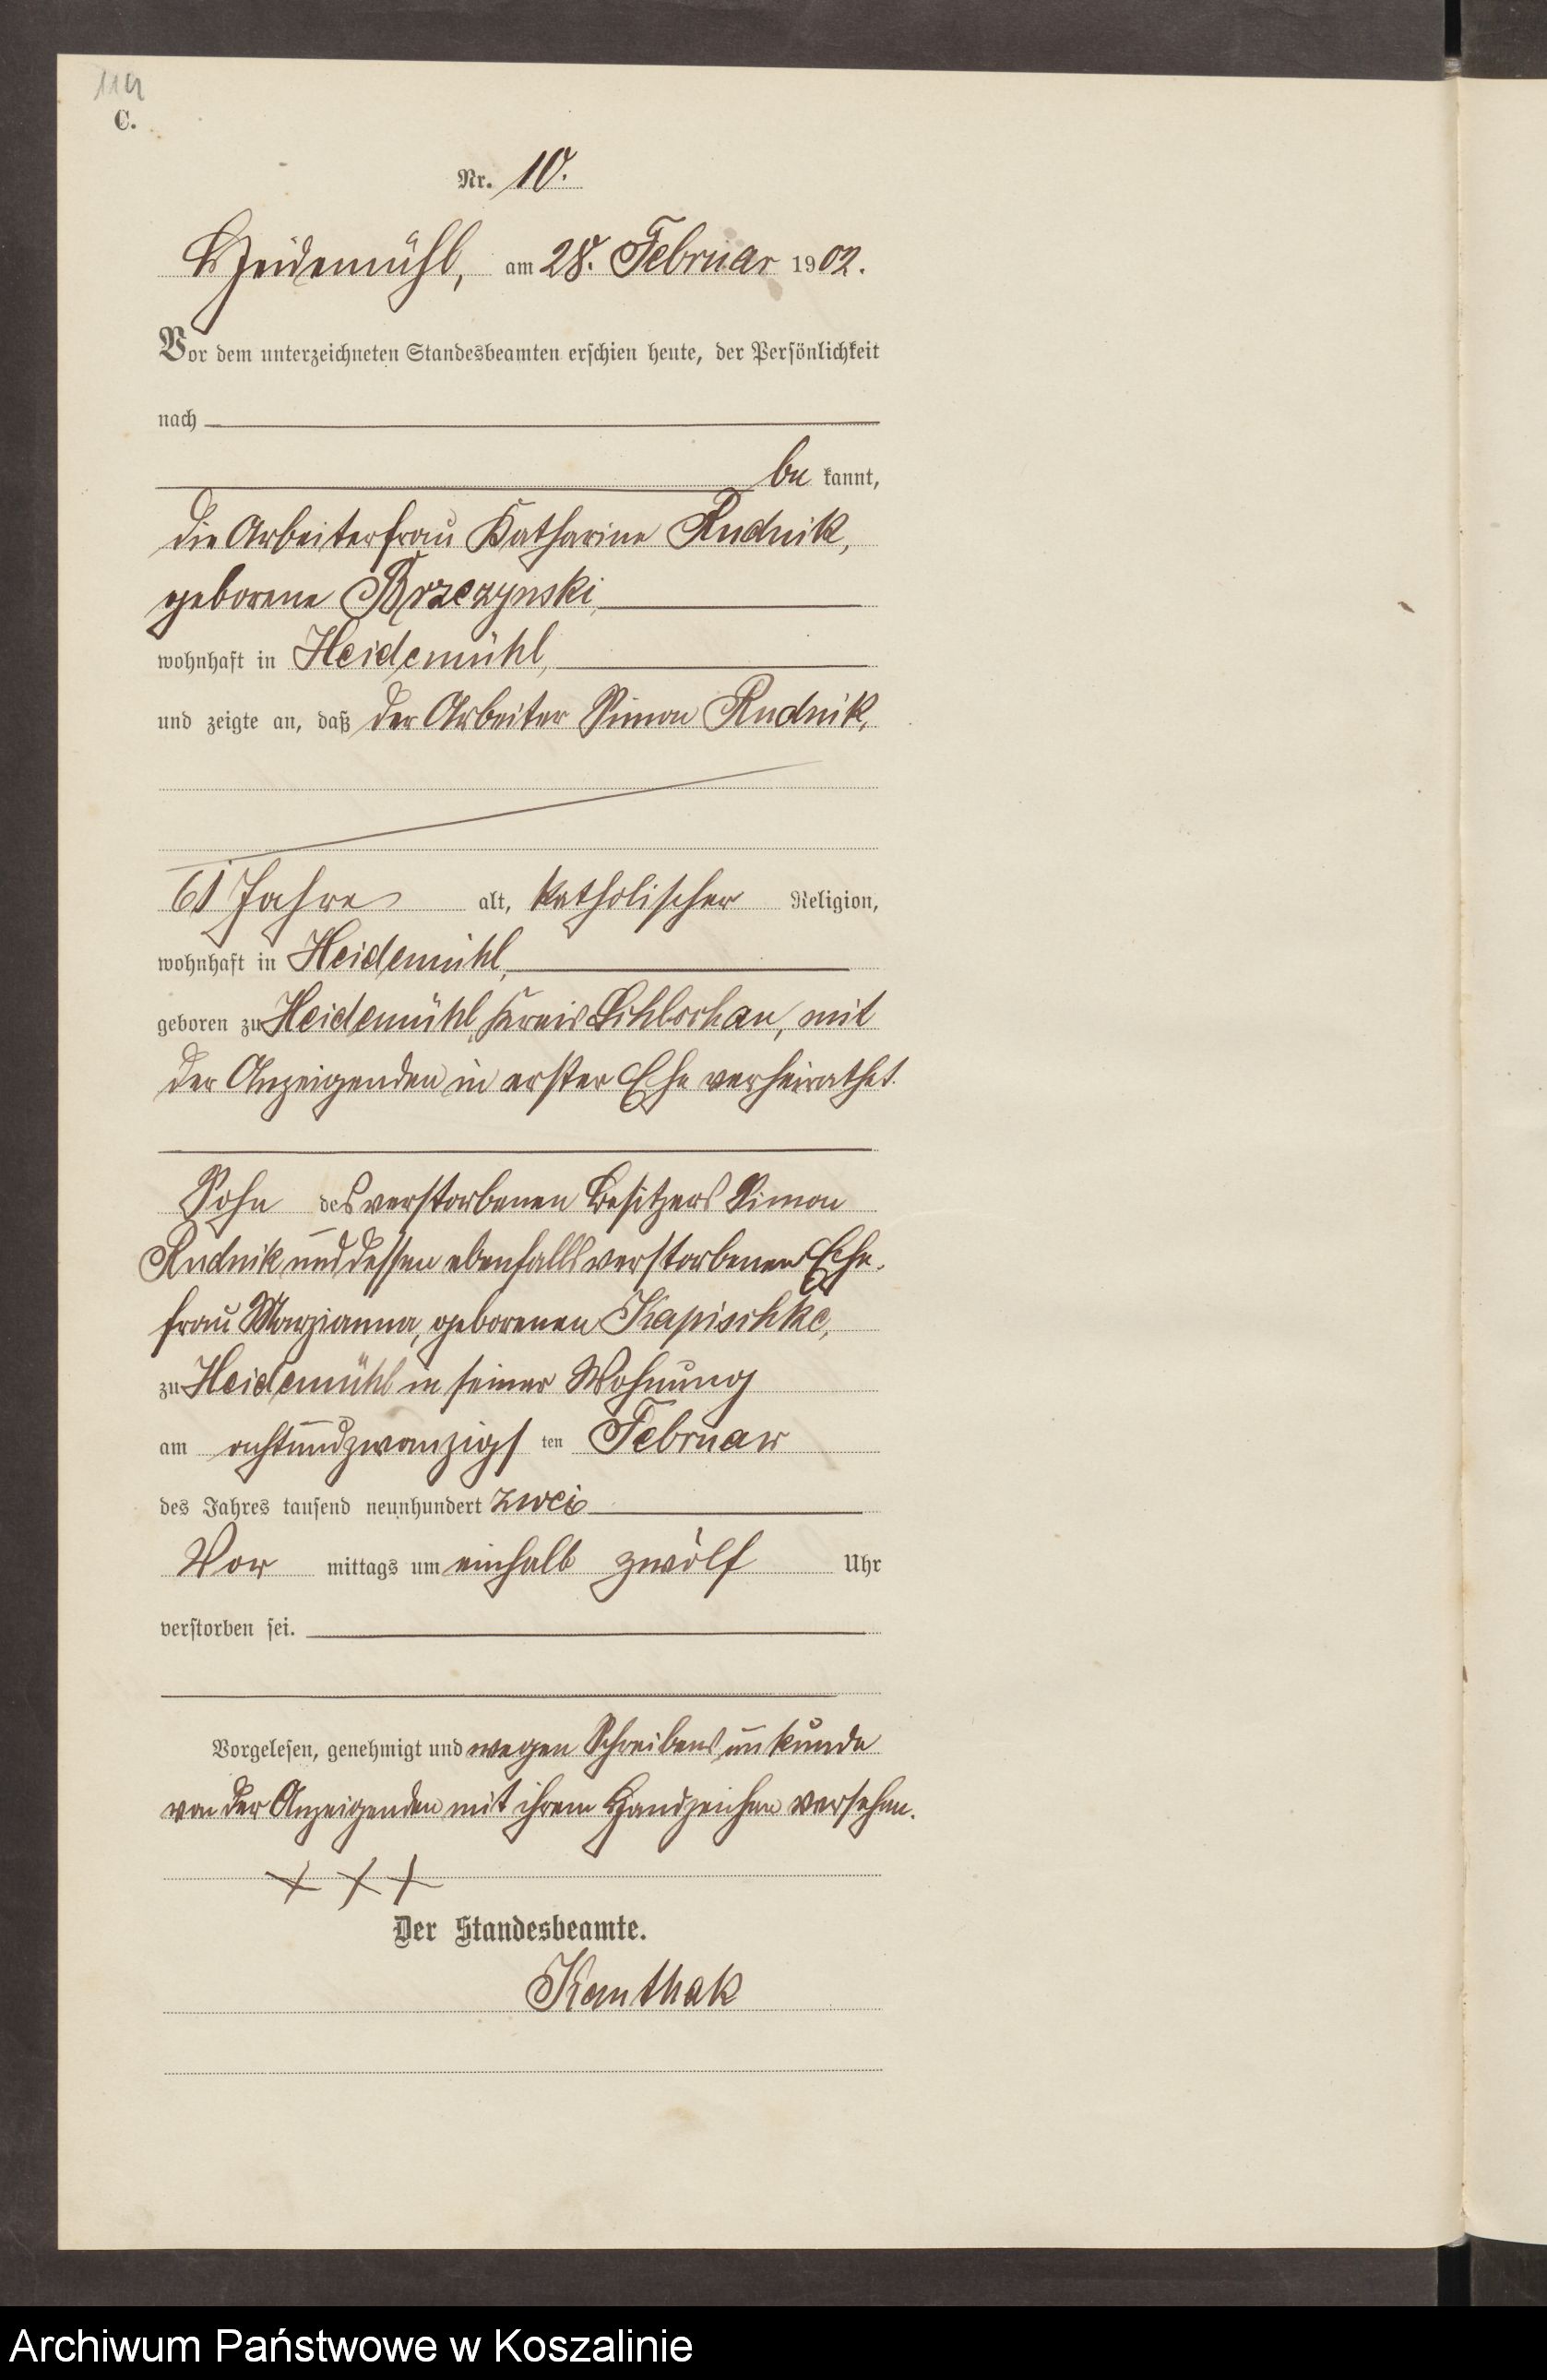 C.
Nr. 10.
Heidemühl, am 28. Februar 1902.
Vor dem unterzeichneten Standesbeamten erschien heute, der Persönlichkeit
nach
be kannt,
die Arbeiterfrau Katharine Rudnik,
geborene Brzezynski,
wohnhaft in Heidemühl,
und zeigte an, daß der Arbeiter Simon Rudnik,
61 Jahre alt, katholischer Religion,
wohnhaft in Heidemühl,
geboren zu Heidemühl, Kreis Schlochau, mit
der Anzeigenden in erster Ehe verheirathet.
Sohn des verstorbenen Besitzers Simon
Rudnik und dessen ebenfalls verstorbenen Ehe-
frau Marzianna, geborenen Kapischke,
zu Heidemühl in seiner Wohnung
am achtundzwanzigs ten Februar
des Jahres tausend neunhundert zwei
Vor mittags um einhalb zwölf Uhr
verstorben sei.
Vorgelesen, genehmigt und wegen Schreibensunkunde
von der Anzeigenden mit ihrem Handzeichen versehen.
+ + +
Der Standesbeamte.
Kanthak
Archiwum Państwowe w Koszalinie